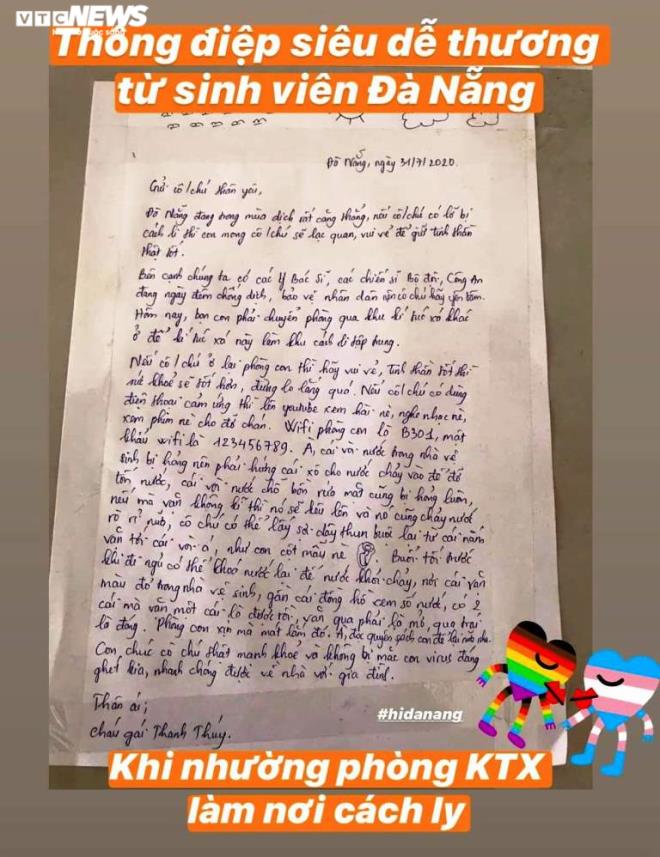 VTC NEWS
Thông điệp siêu dễ thương
từ sinh viên Đà Nẵng
Đà Nẵng, ngày 31/7/2020.
Gửi cô/chú thân yêu,
Đà Nẵng đang trong mùa dịch rất căng thẳng, nếu cô/chú có lỡ bị
cách li thì con mong cô/chú sẽ lạc quan, vui vẻ để giữ tinh thần
thật tốt.
Bên cạnh chúng ta có các Y Bác Sĩ, các chiến sĩ Bộ đội, Công An
đang ngày đêm chống dịch, bảo vệ nhân dân nên cô chú hãy yên tâm.
Hôm nay, bọn con phải chuyển phòng qua khu kí túc xá khác
ở để kí túc xá này làm khu cách li tập trung.
Nếu cô/chú ở lại phòng con thì hãy vui vẻ, tinh thần tốt thì
sức khoẻ sẽ tốt hơn, đừng lo lắng quá. Nếu cô/chú có dùng
điện thoại cảm ứng thì lên youtube xem hài nè, nghe nhạc nè,
xem phim nè cho đỡ chán. Wifi phòng con là B301, mật
khẩu wifi là 123456789. À, cái vòi nước trong nhà vệ
sinh bị hỏng nên phải hứng cái xô cho nước chảy vào để đỡ
tốn nước, cái vòi nước chỗ bồn rửa mặt cũng bị hỏng luôn,
nếu mà vặn không kĩ thì nó sẽ kêu lên và nó cũng chảy nước
rò rỉ nữa, cô chú có thể lấy sợi dây thun buộc lại từ cái nắm
vặn tới cái vòi á, như con cột mẫu nè Buổi tối trước
khi đi ngủ có thể khoá nước lại để nước khỏi chảy, nới cái vặn
màu đỏ trong nhà vệ sinh, gần cái đồng hồ xem số nước, có 2
cái mà vặn một cái là được rồi, vặn qua phải là mở, qua trái
là đóng. Phòng con xịn mà mát lắm đó. À, đọc quyển sách con để lại nữa nha.
Con chúc cô chú thật mạnh khoẻ và không bị mắc con virus đáng
ghét kia, nhanh chóng được về nhà với gia đình.
Thân ái,
cháu gái Thanh Thúy.
#hidanang
Khi nhường phòng KTX
làm nơi cách ly